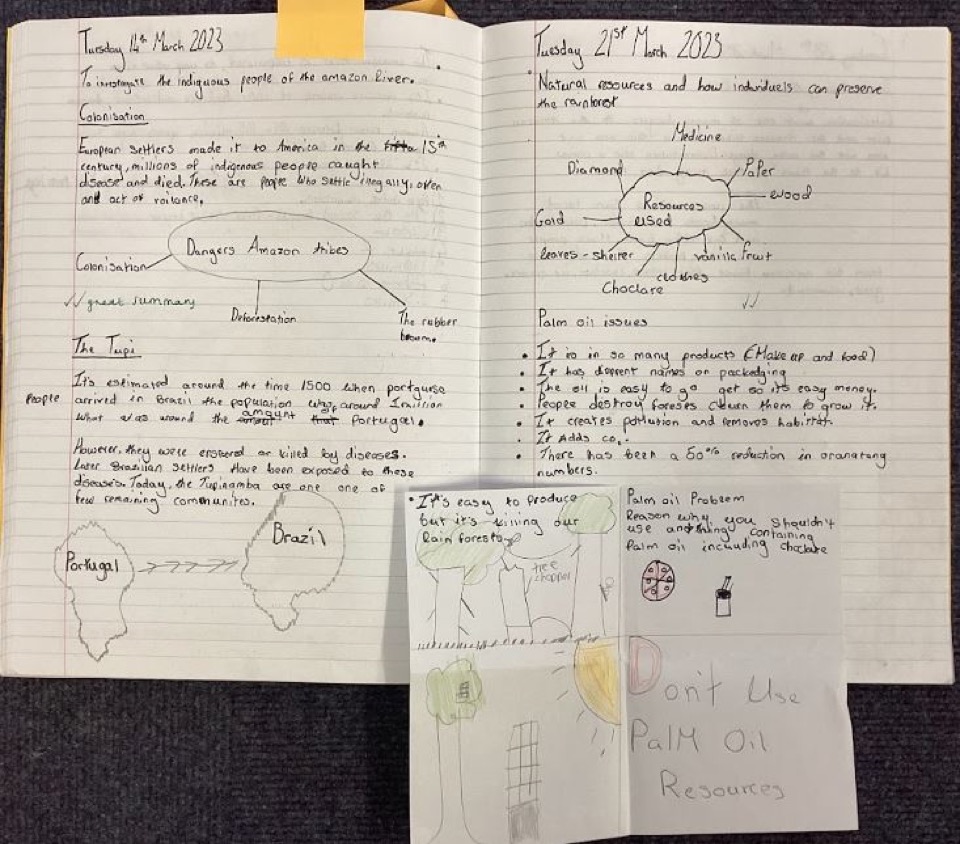 Tuesday 14th March 2023
To investigate the indiguous people of the amazon River.
Colonisation
European settlers made it to America in the 15th
century, millions of indigenous people caught
disease and died. These are people who settle illegally, often
and act of voilance.
Dangers Amazon tribes
Colonisation
Deforestation
The rubber
boum.
great summary
The Tupi
It's estimated around the time 1500 when portguise
People arrived in Brazil the population was around 1 million
what was around the amount Portugal.
However, they were enslaved or killed by diseases.
Later Brazilian settlers Have been exposed to these
diseases. Today, the Tupinamba are one one of
few remaining communites.
Portugal
Brazil
Tuesday 21st March 2023
Natural resources and how individuels can preserve
the rainforest
Medicine
Diamond
Paper
wood
Resources
used
Gold
leaves - shelter
vanilla fruit
clothes
Choclare
Palm oil issues
• It is in so many products (Make up and food)
• It has different names on packedging
• The oil is easy to go get so it's easy money.
• People destroy foreses to grow it.
• It creates pollution and removes habitat.
• It Adds co2.
• There has been a 50% reduction in oranatang
numbers.
• It's easy to produce
but it's killing our
Rain forests
tree
chopper
Palm oil Problem
Reason why you shouldn't
use anything containing
Palm oil including choclate
Don't Use
PalM Oil
Resources